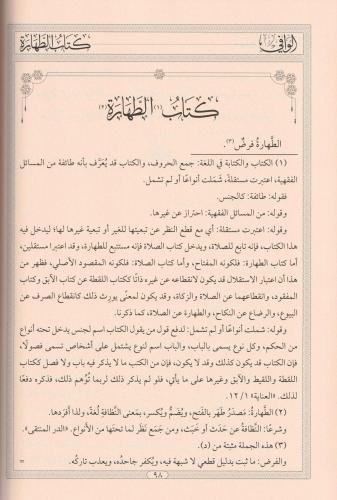 الوافي
كتاب الطهارة
كتاب (١) الطهارة (٢)
الطهارة فرض (٣).
(١) الكتاب والكتابة في اللغة: جمع الحروف، والكتاب قد يُعرَّف بأنه طائفة من المسائل
الفقهية، اعتبرت مستقلةً، شَمَلت أنواعًا أو لم تشمل.
فقوله: طائفة: كالجنس.
وقوله: من المسائل الفقهية: احتراز عن غيرها.
وقوله: اعتبرت مستقلة: أي مع قطع النظر عن تبعيتها للغير أو تبعية غيرها لها؛ ليدخل فيه
هذا الكتاب، فإنه تابع للصلاة، ويدخل كتاب الصلاة، فإنه مستتبع للطهارة، وقد اعتبرا مستقلين،
أما كتاب الطهارة: فلكونه المفتاح، وأما كتاب الصلاة: فلكونه المقصود الأصلي، فظهر من
هذا أن اعتبار الاستقلال قد يكون لانقطاعه عن غيره ذاتًا ككتاب اللقطة عن كتاب الآبق وكتاب
المفقود، وانقطاعهما عن الصلاة والزكاة، وقد يكون لمعنًى يورث ذلك كانقطاع الصرف عن
البيوع، والرضاع عن النكاح، والطهارة عن الصلاة، كما ذكرنا.
وقوله: شملت أنواعًا أو لم تشمل: لدفع قول من يقول الكتاب اسم لجنس يدخل تحته أنواع
من الحكم، وكل نوع يسمى بالباب، والباب اسم لنوع يشتمل على أشخاص تسمى فصولًا،
فإن الكتاب قد يكون كذلك وقد لا يكون، فإن من الكتب ما لا يذكر فيه باب ولا فصل ككتاب
اللقطة واللقيط والآبق وغيرها على ما يأتي، فلو لم يذكر ذلك لربما تُوُهِّم ذلك، فذكره دفعًا
لذلك. «العناية» ١/ ١٢.
(٢) الطهارةُ: مَصدَرُ طَهر بالفتح، ويُضمُّ ويُكسر، بمعنى النَّظافة لُغةً، ولذا أفرَدها.
وشرعًا: النَّظافةُ عن حَدَث أو خَبَث، ومن جمَع نَظَر لما تحتَها من الأنواع. «الدر المنتقى».
(٣) هذه الجملة مثبتة من (د).
والفرض: ما ثبت بدليل قطعي لا شبهة فيه، ويُكفر جاحدُه، ويعذب تاركُه. =
٩٨